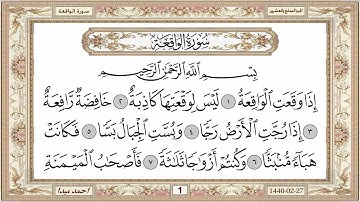 الجزء السابع والعشرين
سورة الواقعة
سُورَةُ الوَاقِعَةِ
بِسْمِ اللَّهِ الرَّحْمَٰنِ الرَّحِيمِ
إِذَا وَقَعَتِ الْوَاقِعَةُ ١ لَيْسَ لِوَقْعَتِهَا كَاذِبَةٌ ٢ خَافِضَةٌ رَّافِعَةٌ
٣ إِذَا رُجَّتِ الْأَرْضُ رَجًّا ٤ وَبُسَّتِ الْجِبَالُ بَسًّا ٥ فَكَانَتْ
هَبَاءً مُّنبَثًّا ٦ وَكُنتُمْ أَزْوَاجًا ثَلَاثَةً ٧ فَأَصْحَابُ الْمَيْمَنَةِ
1
1440-02-27